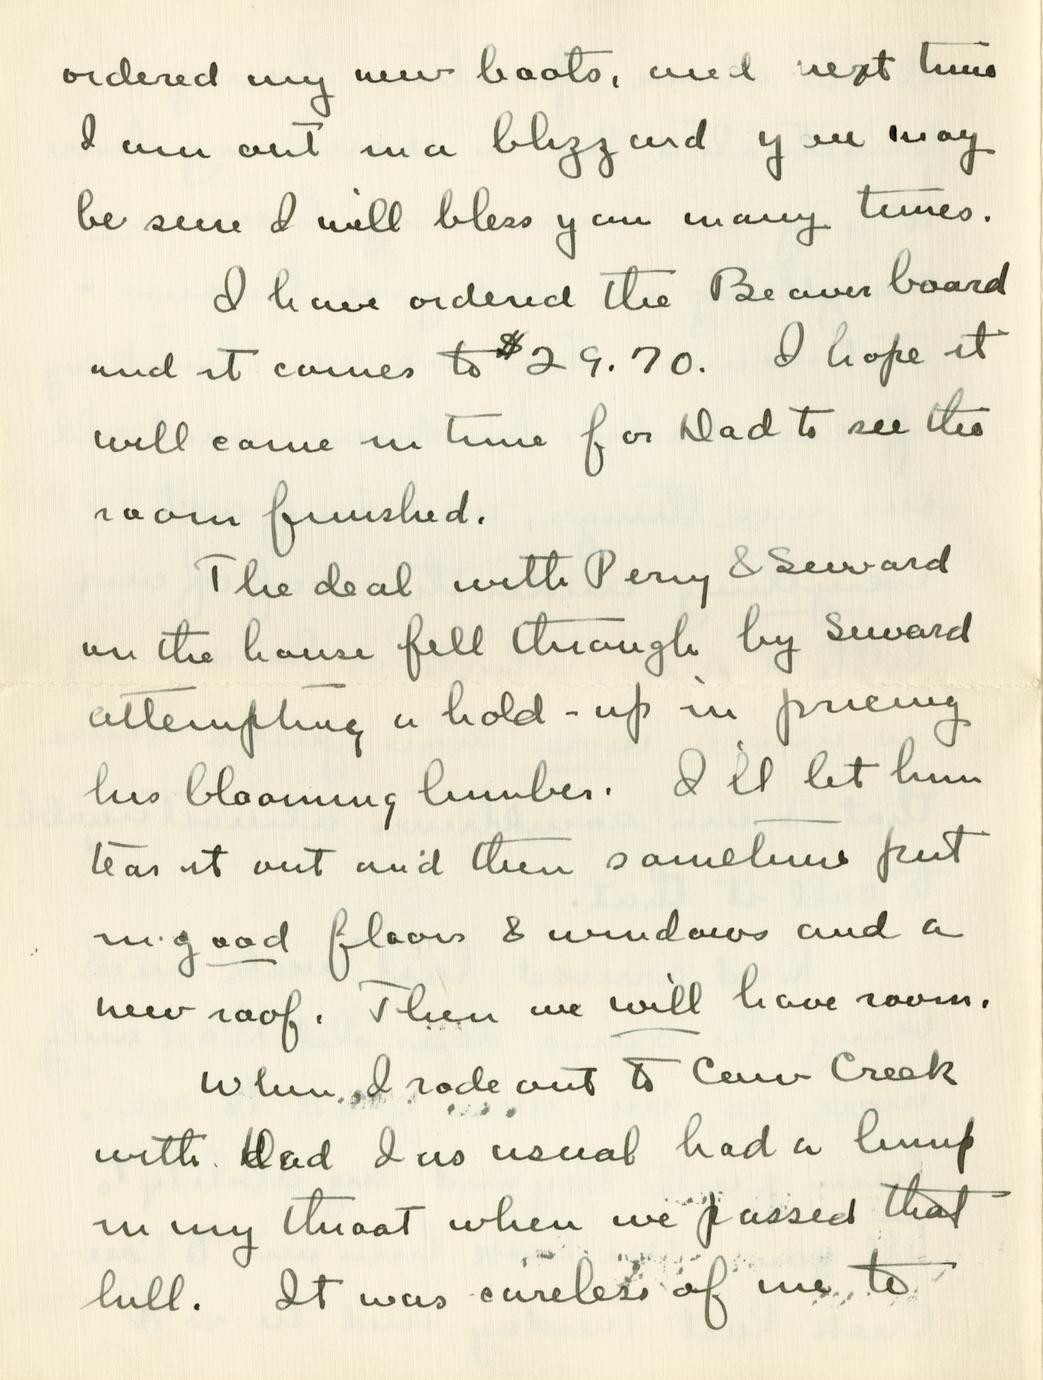 ordered my new boots, and next time
I am out in a blizzard you may
be sure I will bless you many times.
I have ordered the Beaver board
and it comes to $29.70. I hope it
will come in time for Dad to see the
room finished.
The deal with Perry & Seward
on the house fell through by Seward
attempting a hold-up in pricing
his blooming lumber. I'll let him
tear it out and then sometime put
in good floors & windows and a
new roof. Then we will have room.
When I rode out to Cow Creek
with Dad I as usual had a lump
in my throat when we passed that
hill. It was careless of me to